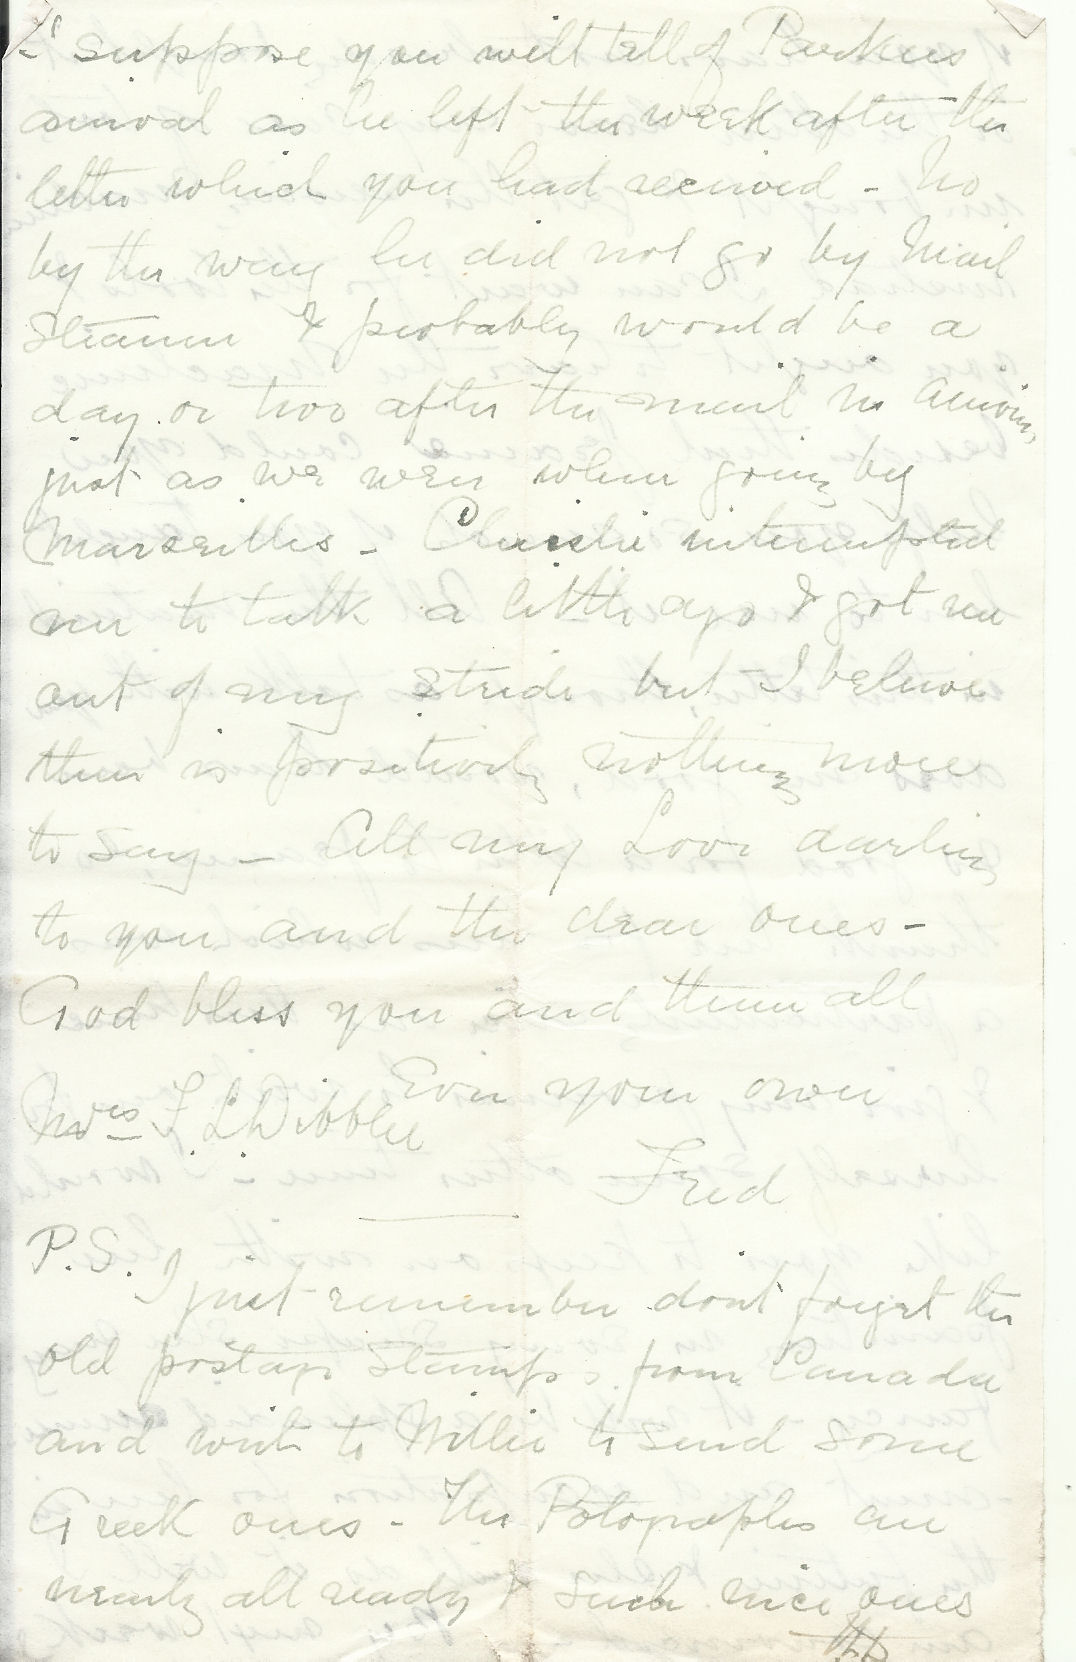 I suppose you will tell of Parkers
arrival as he left the week after the
letter which you had received - No
by the way he did not go by Mail
Steamer & probably would be a
day or two after the mail in arriving
just as we were when going by
Marseilles - Charlie interrupted
me to talk a little ago & got me
out of my stride but I believe
there is positively nothing more
to say - All my Love darling
to you and the dear ones -
God bless you and them all
Ever your own
Mrs F L Dibblee
Fred
P.S. I just remember dont forget the
old postage stamps from Canada
and write to Willie to send some
Greek ones - The Potographs are
nearly all ready & such nice ones